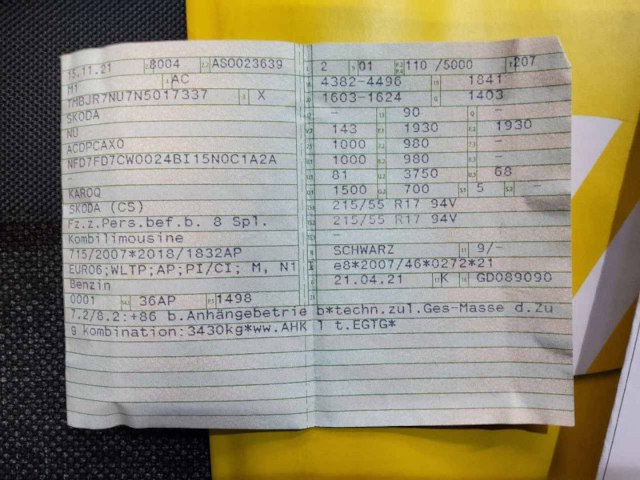 15.11.21 8004 AS0023639
M1 AC
TMBJR7NU7N5017337 X
SKODA
NU
ACDPCAX0
NFD7FD7CW0024BI15N0C1A2A
-
KAROQ
SKODA (CS)
Fz.z.Pers.bef.b. 8 Spl.
Kombilimousine
715/2007*2018/1832AP
EURO6;WLTP;AP;PI/CI; M, N1 I
Benzin
0001 36AP 1498
2 01 110 /5000 207
4382-4496 1841
1603-1624 1403
- 90 -
143 1930 1930
1000 980 -
1000 980 -
81 3750 68
1500 700 5 -
215/55 R17 94V
215/55 R17 94V
-
SCHWARZ 9/-
e8*2007/46*0272*21
21.04.21 K GD089090
7.2/8.2:+86 b.Anhängebetrie b*techn.zul.Ges-Masse d.Zu
g kombination:3430kg*ww.AHK l t.EGTG*